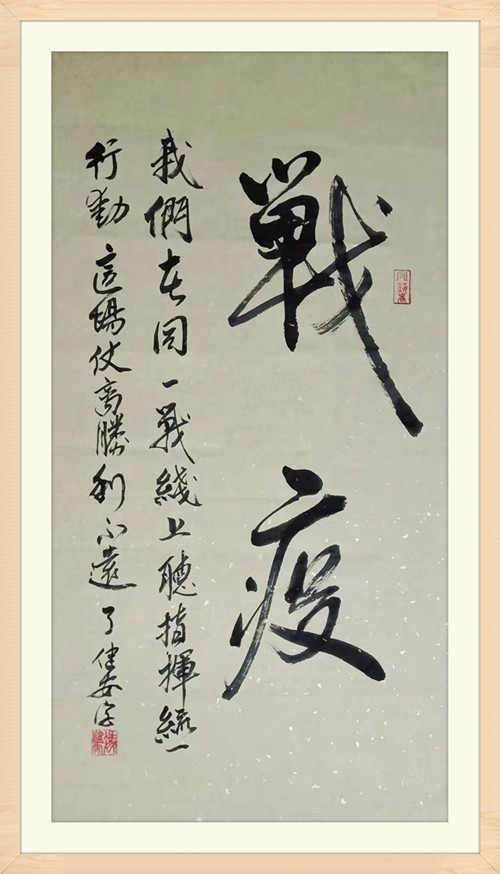 戰疫
我們在同一戰綫上聽指揮統一
行動這場仗离勝利不遠了健安字